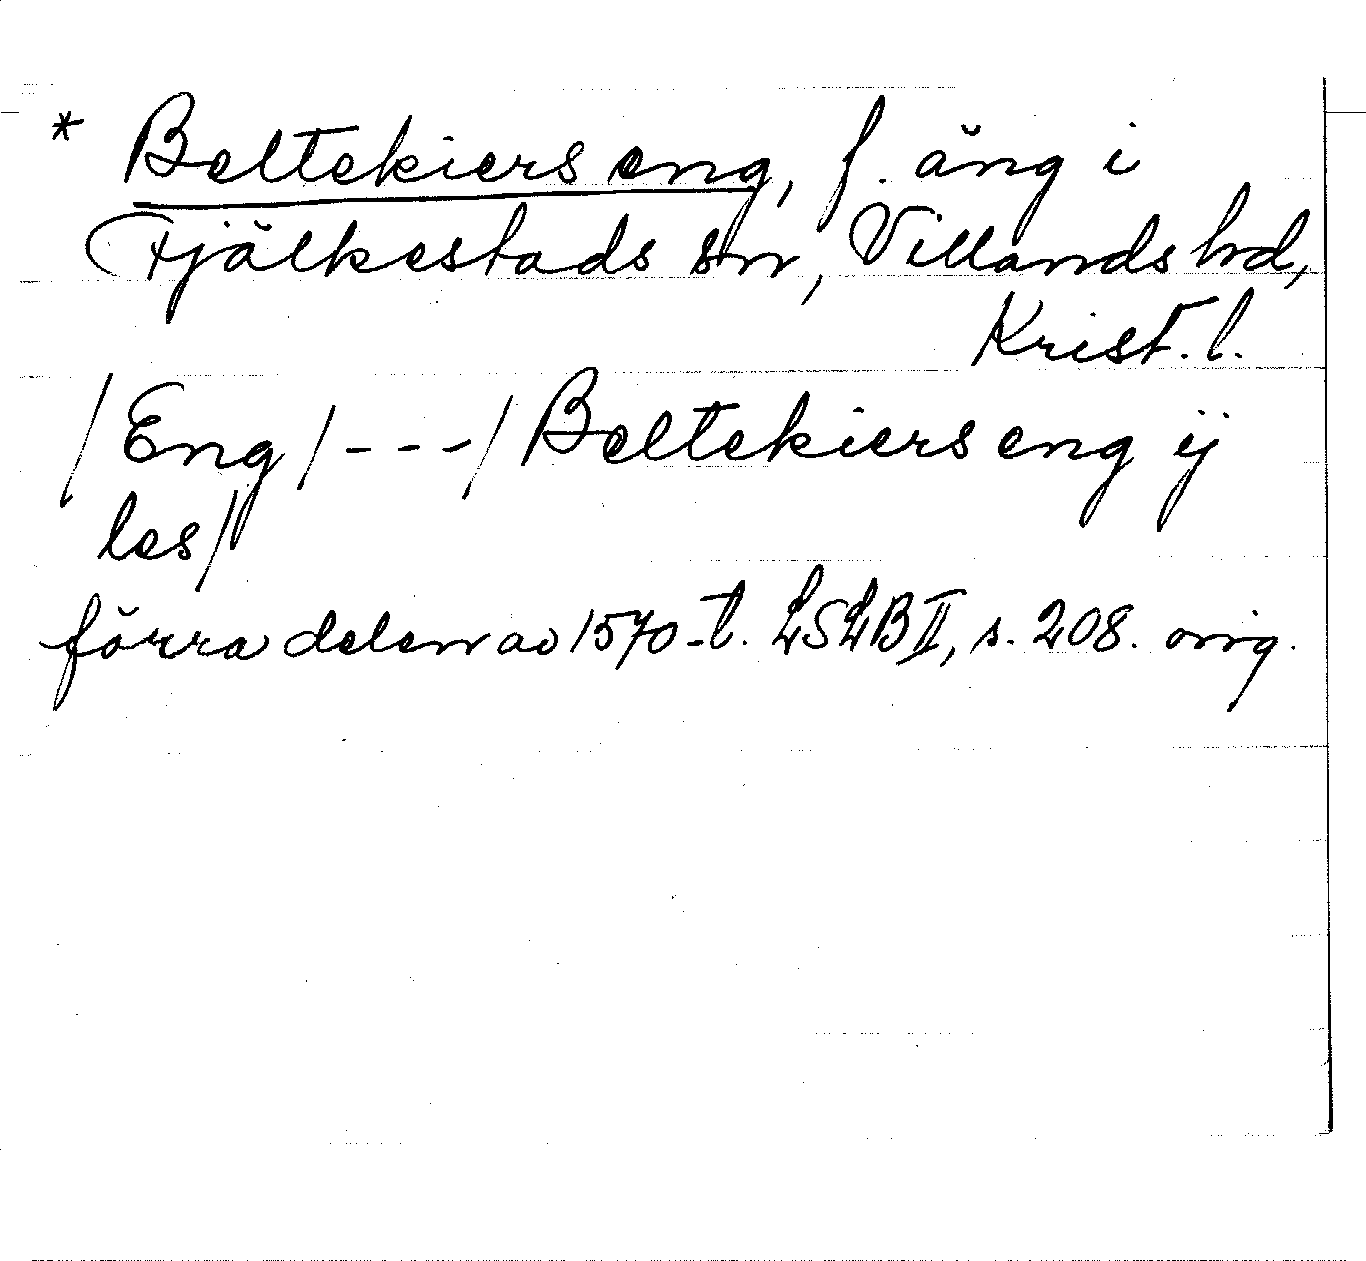 * Beltekiers eng, f. äng i
Fjälkestads sn, Villands hd,
Krist. l.
/Eng/---/Beltekiers eng ij
les/
förra delen av 1570-t. LSLB II, s. 208. orig.